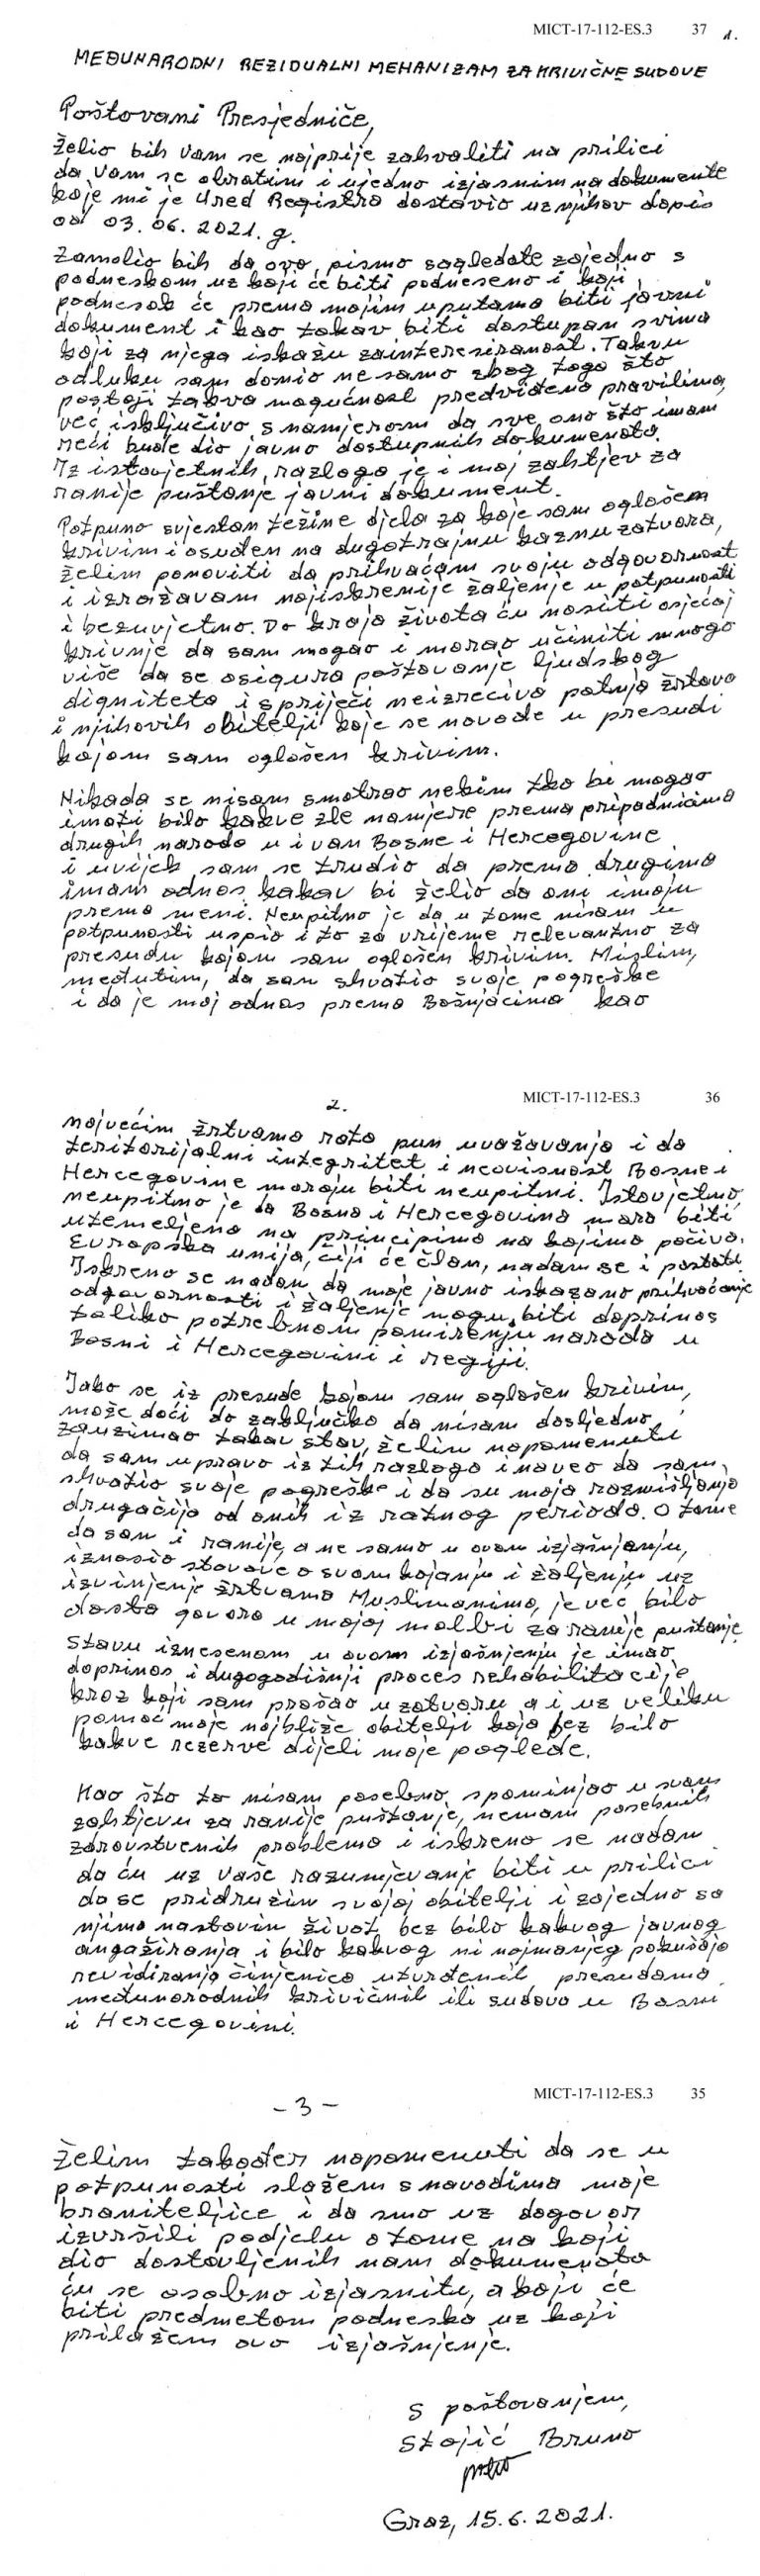 MICT-17-112-ES.3 37 1.
MEĐUNARODNI REZIDUALNI MEHANIZAM ZA KRIVIČNE SUDOVE
Poštovani Presjedniče,
Želio bih Vam se najprije zahvaliti na prilici
da Vam se obratim i ujedno izjasnim na dokumente
koje mi je Ured Registra dostavio uz njihov dopis
od 03.06.2021.g.
Zamolio bih da ovo pismo sagledate zajedno s
podneskom uz koji će biti podneseno i koji
podnesak će prema mojim uputama biti javni
dokument i kao takav biti dostupan svima
koji za njega iskažu zainteresiranost. Takvu
odluku sam donio ne samo zbog toga što
postoji takva mogućnost predviđena pravilima,
već isključivo s namjerom da sve ono što imam
reći bude dio javno dostupnih dokumenata.
Iz istovjetnih razloga je i moj zahtjev za
ranije puštanje javni dokument.
Potpuno svjestan težine djela za koje sam oglašen
krivim i osuđen na dugotrajnu kaznu zatvora,
želim ponoviti da prihvaćam svoju odgovornost
i izražavam najiskrenije žaljenje u potpunosti
i bezuvjetno. Do kraja života ću nositi osjećaj
krivnje da sam mogao i morao učiniti mnogo
više da se osigura poštovanje ljudskog
digniteta i spriječi neizreciva patnja žrtava
i njihovih obitelji koje se navode u presudi
kojom sam oglašen krivim.
Nikada se nisam smatrao nekim tko bi mogao
imati bilo kakve zle namjere prema pripadnicima
drugih naroda u i van Bosne i Hercegovine
i uvijek sam se trudio da prema drugima
imam odnos kakav bi želio da oni imaju
prema meni. Neupitno je da u tome nisam u
potpunosti uspio i to za vrijeme relevantno za
presudu kojom sam oglašen krivim. Mislim,
međutim, da sam shvatio svoje pogreške
i da je moj odnos prema Bošnjacima kao
2. MICT-17-112-ES.3 36
najvećim žrtvama rata pun uvažavanja i da
teritorijalni integritet i neovisnost Bosne i
Hercegovine moraju biti neupitni. Istovjetno,
neupitno je da Bosna i Hercegovina mora biti
utemeljena na principima na kojima počiva
Europska unija, čiji će član, nadam se i postati.
Iskreno se nadam da moje javno iskazano prihvaćanje
odgovornosti i žaljenje mogu biti doprinos
toliko potrebnom pomirenju naroda u
Bosni i Hercegovini i regiji.
Iako se iz presude kojom sam oglašen krivim,
može doći do zaključka da nisam dosljedno
zauzimao takav stav, želim napomenuti
da sam upravo iz tih razloga i naveo da sam
shvatio svoje pogreške i da su moja razmišljanja
drugačija od onih iz ratnog perioda. O tome
da sam i ranije, a ne samo u ovom izjašnjanju,
iznosio stavove o svom kajanju i žaljenju uz
izvinjenje žrtvama Muslimanima, je već bilo
dosta govora u mojoj molbi za ranije puštanje.
Stavu iznesenom u ovom izjašnjenju je imao
doprinos i dugogodišnji proces rehabilitacije
kroz koji sam prošao u zatvoru a i uz veliku
pomoć moje najbliže obitelji koja bez bilo
kakve rezerve dijeli moje poglede.
Kao što to nisam posebno spominjao u svom
zahtjevu za ranije puštanje, nemam posebnih
zdravstvenih problema i iskreno se nadam
da ću uz Vaše razumjevanje biti u prilici
da se pridružim svojoj obitelji i zajedno sa
njima nastavim život bez bilo kakvog javnog
angažiranja i bilo kakvog ni najmanjeg pokušaja
revidiranja činjenica utvrđenih presudama
međunarodnih krivičnih ili sudova u Bosni
i Hercegovini.
MICT-17-112-ES.3 35
- 3 -
Želim također napomenuti da se u
potpunosti slažem s navodima moje
braniteljice i da smo uz dogovor
izvršili podjelu o tome na koji
dio dostavljenih nam dokumenata
ću se osobno izjasniti, a koji će
biti predmetom podneska uz koji
prilažem ovo izjašnjenje.
S poštovanjem,
Stojić Bruno
Graz, 15.6.2021.